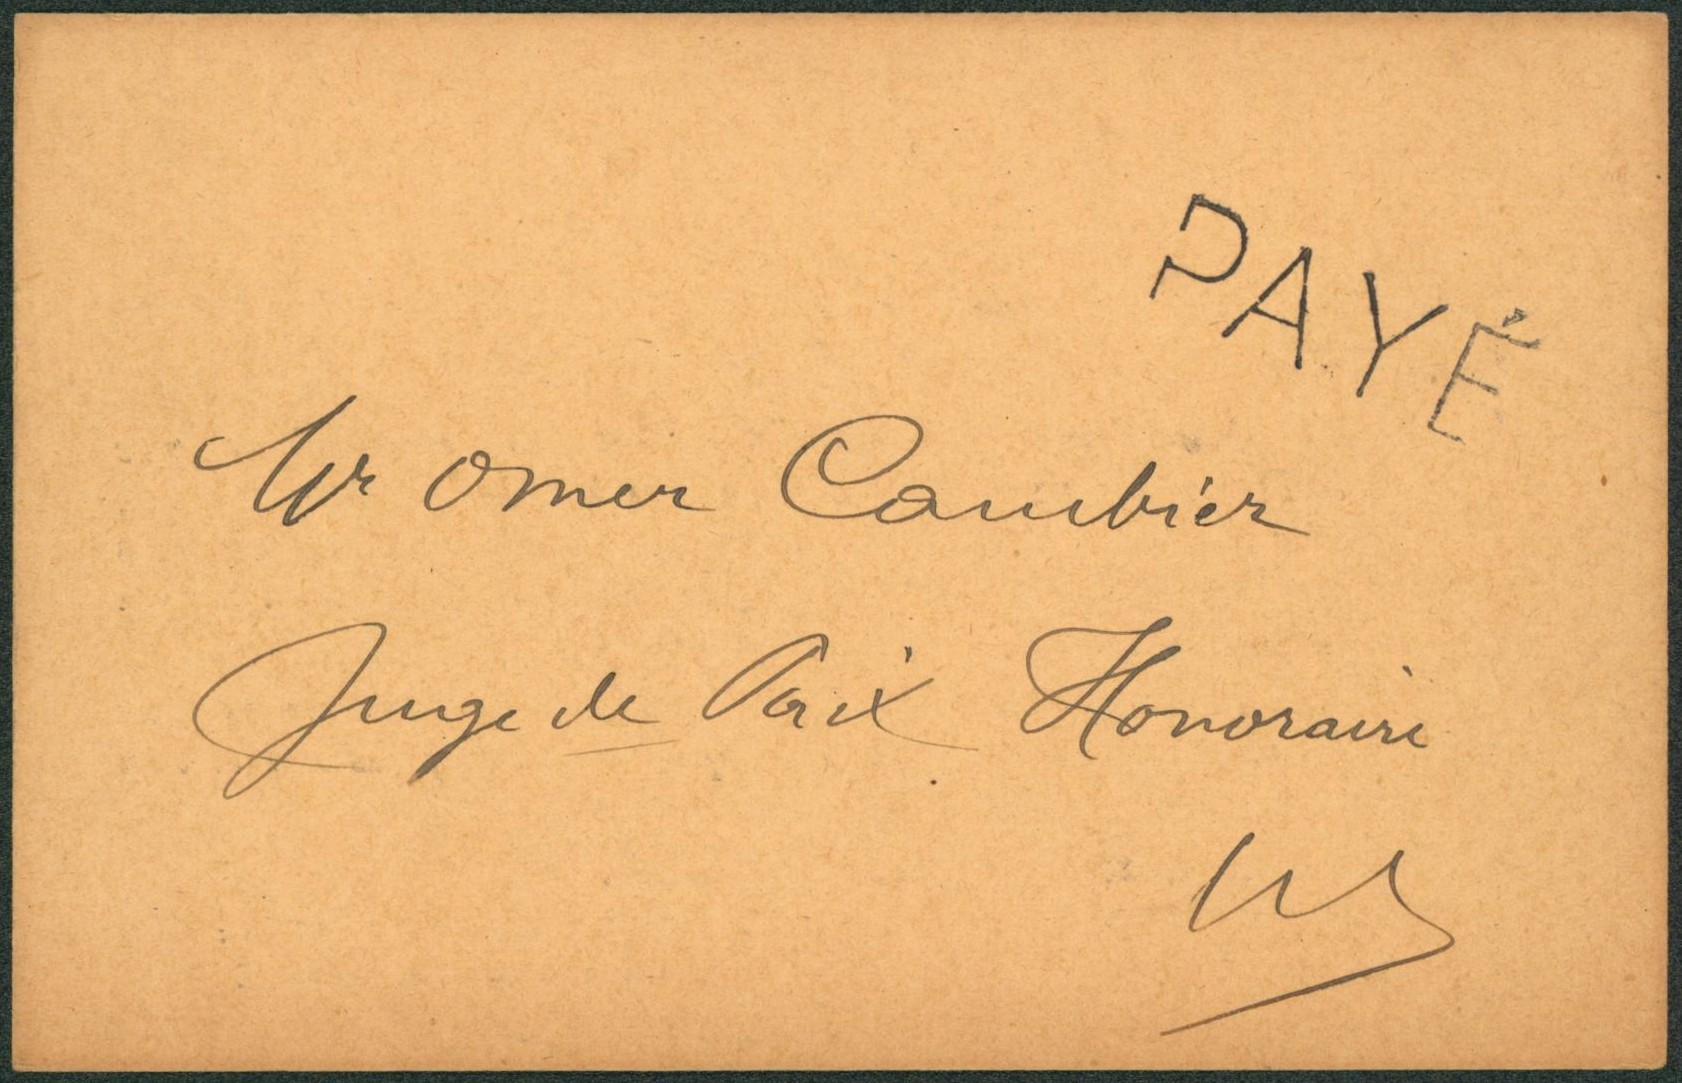 PAYÉ
Mr Omer Cambier
Juge de Paix Honoraire